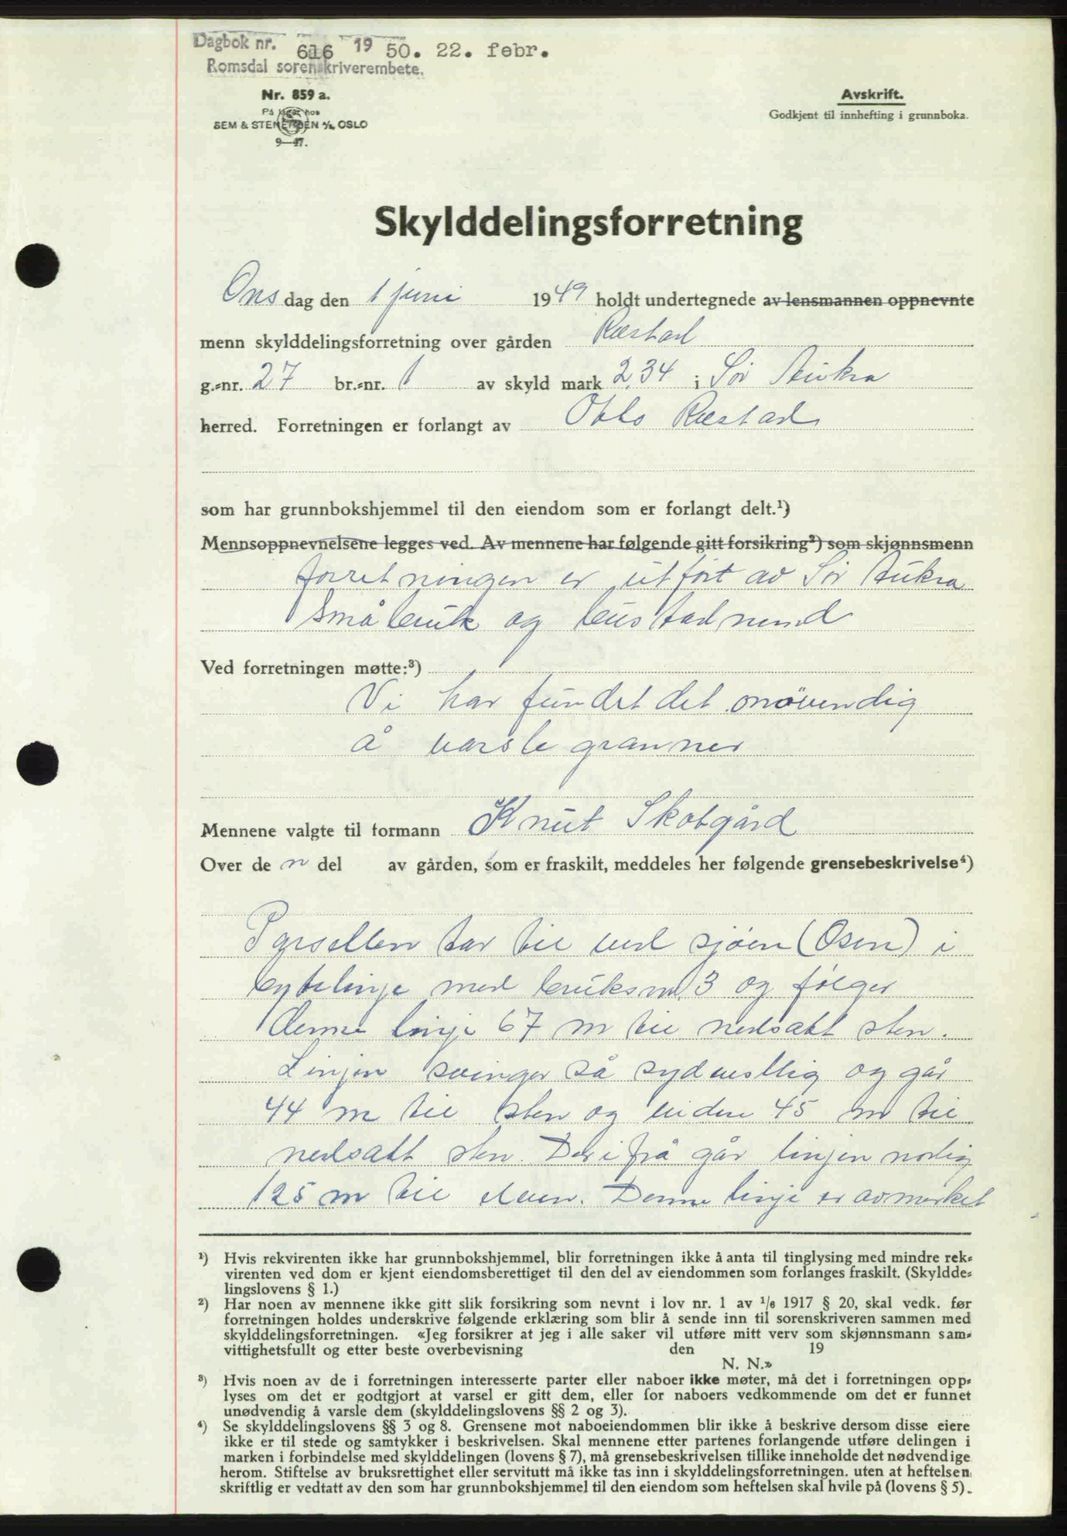 Dagbok nr. 616 19 50. 22. febr.
Romsdal sorenskriverembete.
Nr. 859 a.
På lager hos
SEM & STENERSEN A/S, OSLO
9—47.
Avskrift.
Godkjent til innhefting i grunnboka.
Skylddelingsforretning
Ons dag den 1 juni 1949 holdt undertegnede av lensmannen oppnevnte
menn skylddelingsforretning over gården Ræstad
g.-nr. 27 br.-nr. 1 av skyld mark 2,34 i Sør Aukra
herred. Forretningen er forlangt av Otto Ræstad
som har grunnbokshjemmel til den eiendom som er forlangt delt.¹)
Mennsoppnevnelsene legges ved. Av mennene har følgende gitt forsikring²) som skjønnsmenn
forretningen er utført av Sør Aukra
Småbruk og bustadnemd
Ved forretningen møtte:³)
Vi har fundet det onövendig
å varsle granner
Mennene valgte til formann Knut Skotgård
Over de n del av gården, som er fraskilt, meddeles her følgende grensebeskrivelse⁴)
Parsellen tar til ved sjøen (Osen) i
bytelinje med bruksnr. 3 og følger
denne linje 67 m til nedsatt sten.
Linjen svinger så sydvestlig og går
44 m til sten og videre 45 m til
nedsatt sten. Derifrå går linjen nordlig
125 m til elven. Denne linje er avmerket
¹) Hvis rekvirenten ikke har grunnbokshjemmel, blir forretningen ikke å anta til tinglysing med mindre rek-
virenten ved dom er kjent eiendomsberettiget til den del av eiendommen som forlanges fraskilt. (Skyldde-
lingslovens § 1.)
²) Har noen av mennene ikke gitt slik forsikring som nevnt i lov nr. 1 av 1/6 1917 § 20, skal vedk. før
forretningen holdes underskrive følgende erklæring som blir å sende inn til sorenskriveren sammen med
skylddelingsforretningen. «Jeg forsikrer at jeg i alle saker vil utføre mitt verv som skjønnsmann sam-
vittighetsfullt og etter beste overbevisning den 19
N. N.»
³) Hvis noen av de i forretningen interesserte parter eller naboer ikke møter, må det i forretningen opp-
lyses om det er godtgjort at varsel er gitt dem, eller for naboers vedkommende om det er funnet
unødvendig å varsle dem (skylddelingslovens §§ 2 og 3).
⁴) Se skylddelingslovens §§ 3 og 8. Grensene mot naboeiendommen blir ikke å beskrive dersom disse eiere
ikke er til stede og samtykker i beskrivelsen. Skal mennene etter partenes forlangende utføre delingen i
marken i forbindelse med skylddelingen (lovens § 7), må grensebeskrivelsen tillike inneholde det nødvendige
herom. Stiftelse av bruksrettighet eller servitutt må ikke tas inn i skylddelingsforretningen. uten at heftelsen
skriftlig er vedtatt av den som har grunnbokshjemmel til den eiendom som heftelsen skal hvile på (lovens § 5).